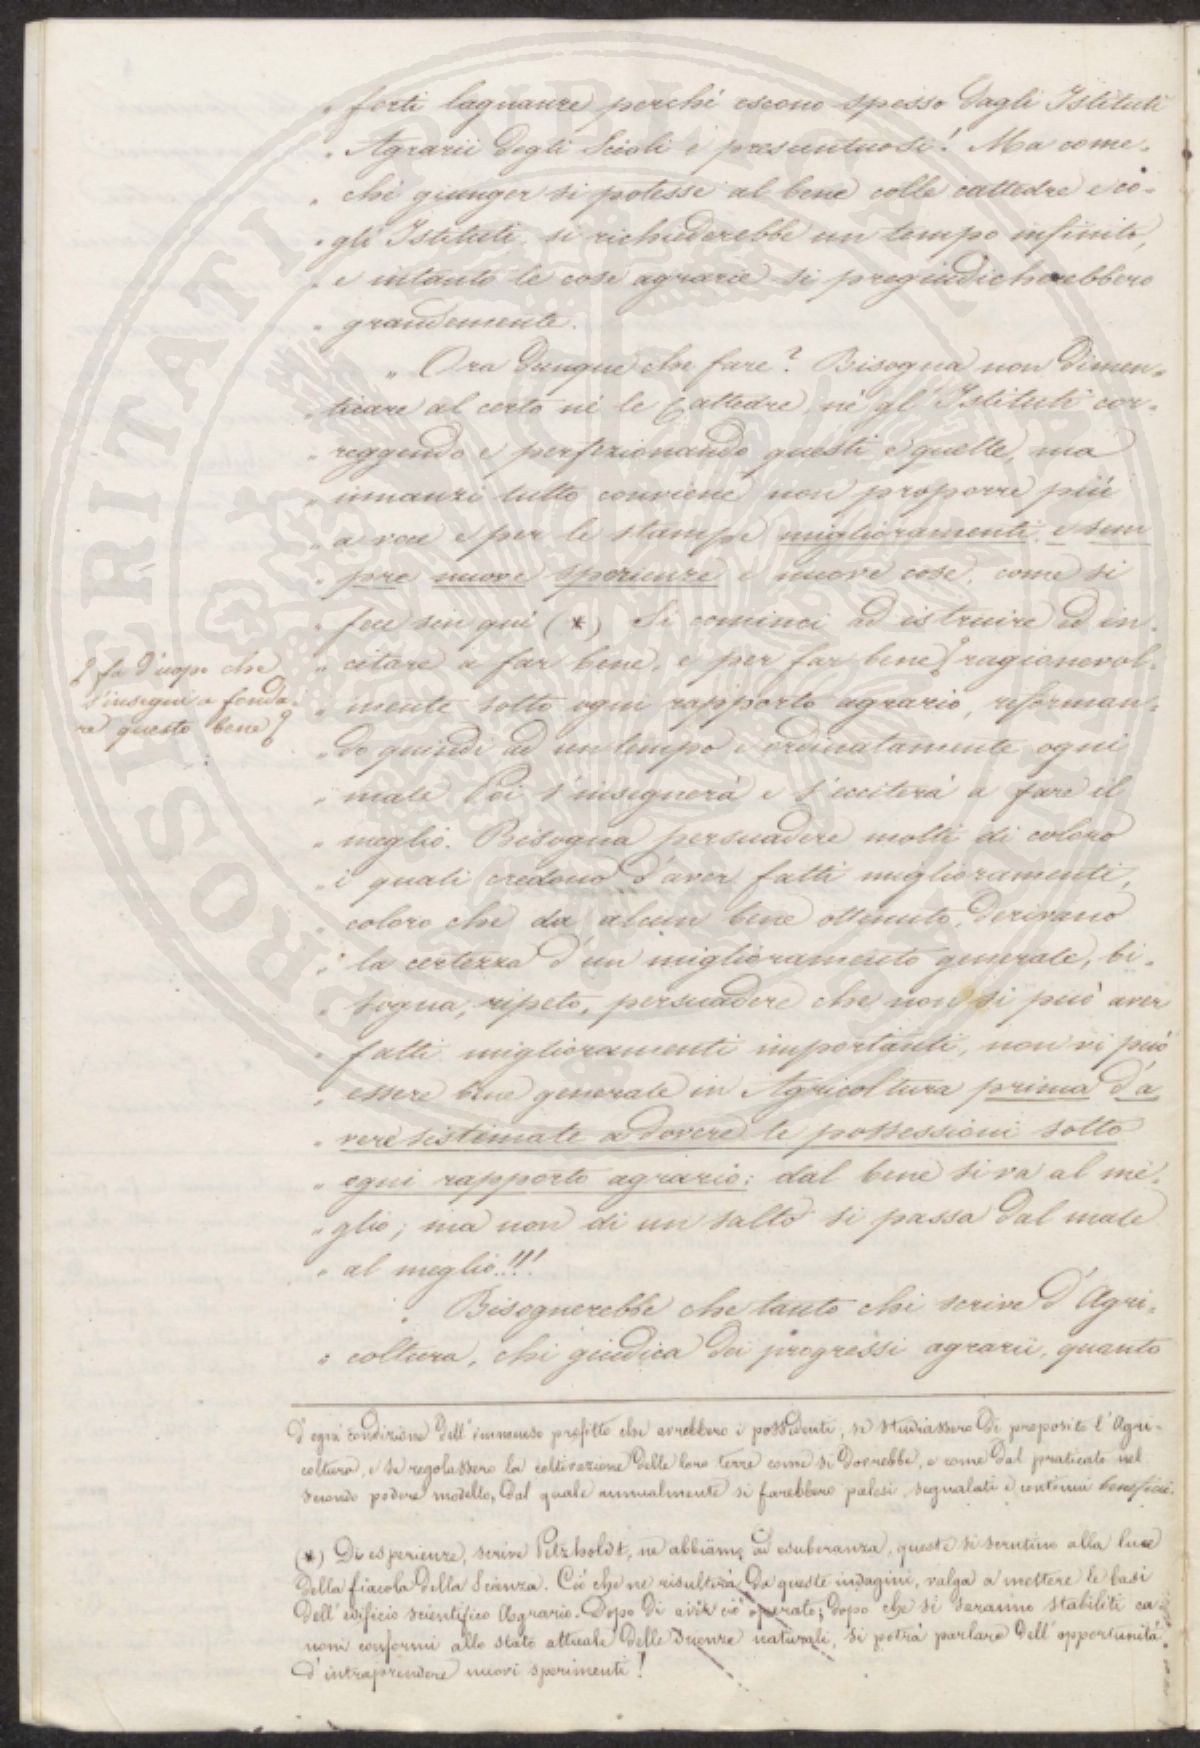 „ forti lagnanze perchè escono spesso dagli Istituti
„ Agrarii degli Scioli e presuntuosi! Ma come-
„ chè giunger si potesse al bene colle cattedre e co-
„ gli Istituti, si richiederebbe un tempo infinito,
„ e intanto le cose agrarie si pregiudicherebbero
„ grandemente.
„ Ora dunque che fare? Bisogna non dimen-
„ ticare al certo nè le Cattedre, nè gl'Istituti cor-
„ reggendo e perfezionando questi e quelle, ma
„ innanzi tutto conviene non proporre più
„ a voce e per le stampe miglioramenti e sem
„ pre nuove sperienze e nuove cose, come si
„ fece sin quì (*) Si cominci ad istruire ed in-
„ citare a far bene, e per far bene ragionevol-
fa d'uopo che
s'insegni a fonda-
re questo bene
„ mente sotto ogni rapporto agrario, riforman-
„ do quindi ad un tempo e ordinatamente ogni
„ male. Poi s'insegnerà e s'ecciterà a fare il
„ meglio. Bisogna persuadere molti di coloro
„ i quali credono d'aver fatti miglioramenti,
„ coloro che da alcun bene ottenuto, derivano
„ la certezza d'un miglioramento generale, bi-
„ sogna, ripeto, persuadere che non si può aver
„ fatti miglioramenti importanti, non vi può
„ essere bene generale in Agricoltura prima d'a
„ vere sistemate a dovere le possessioni sotto
„ ogni rapporto agrario: dal bene si va al me-
„ glio; ma non di un salto si passa dal male
„ al meglio!!!
„ Bisognerebbe che tanto chi scrive d'Agri-
„ coltura, chi giudica dei progressi agrarii, quanto
d'ogni condizione dell'immenso profitto che avrebbero i possidenti, se studiassero di proposito l'Agri-
coltura, e se regolassero la coltivazione delle loro terre come si dovrebbe, e come dal praticato nel
secondo podere modello, dal quale annualmente si farebbero palesi segnalati e continui beneficii.
(*) Di esperienze, scrive Petzholdt, ne abbiamo ad esuberanza, queste si scrutino alla luce
della fiacola della Scienza. Ciò che ne risulterà da queste indagini, valga a mettere le basi
dell'edificio scientifico Agrario. Dopo di aver ciò operato; dopo che si saranno stabiliti ca-
noni conformi allo stato attuale delle Scienze naturali, si potrà parlare dell'opportunità
d'intraprendere nuovi sperimenti!
PUBLICAE
PROSPERITATI